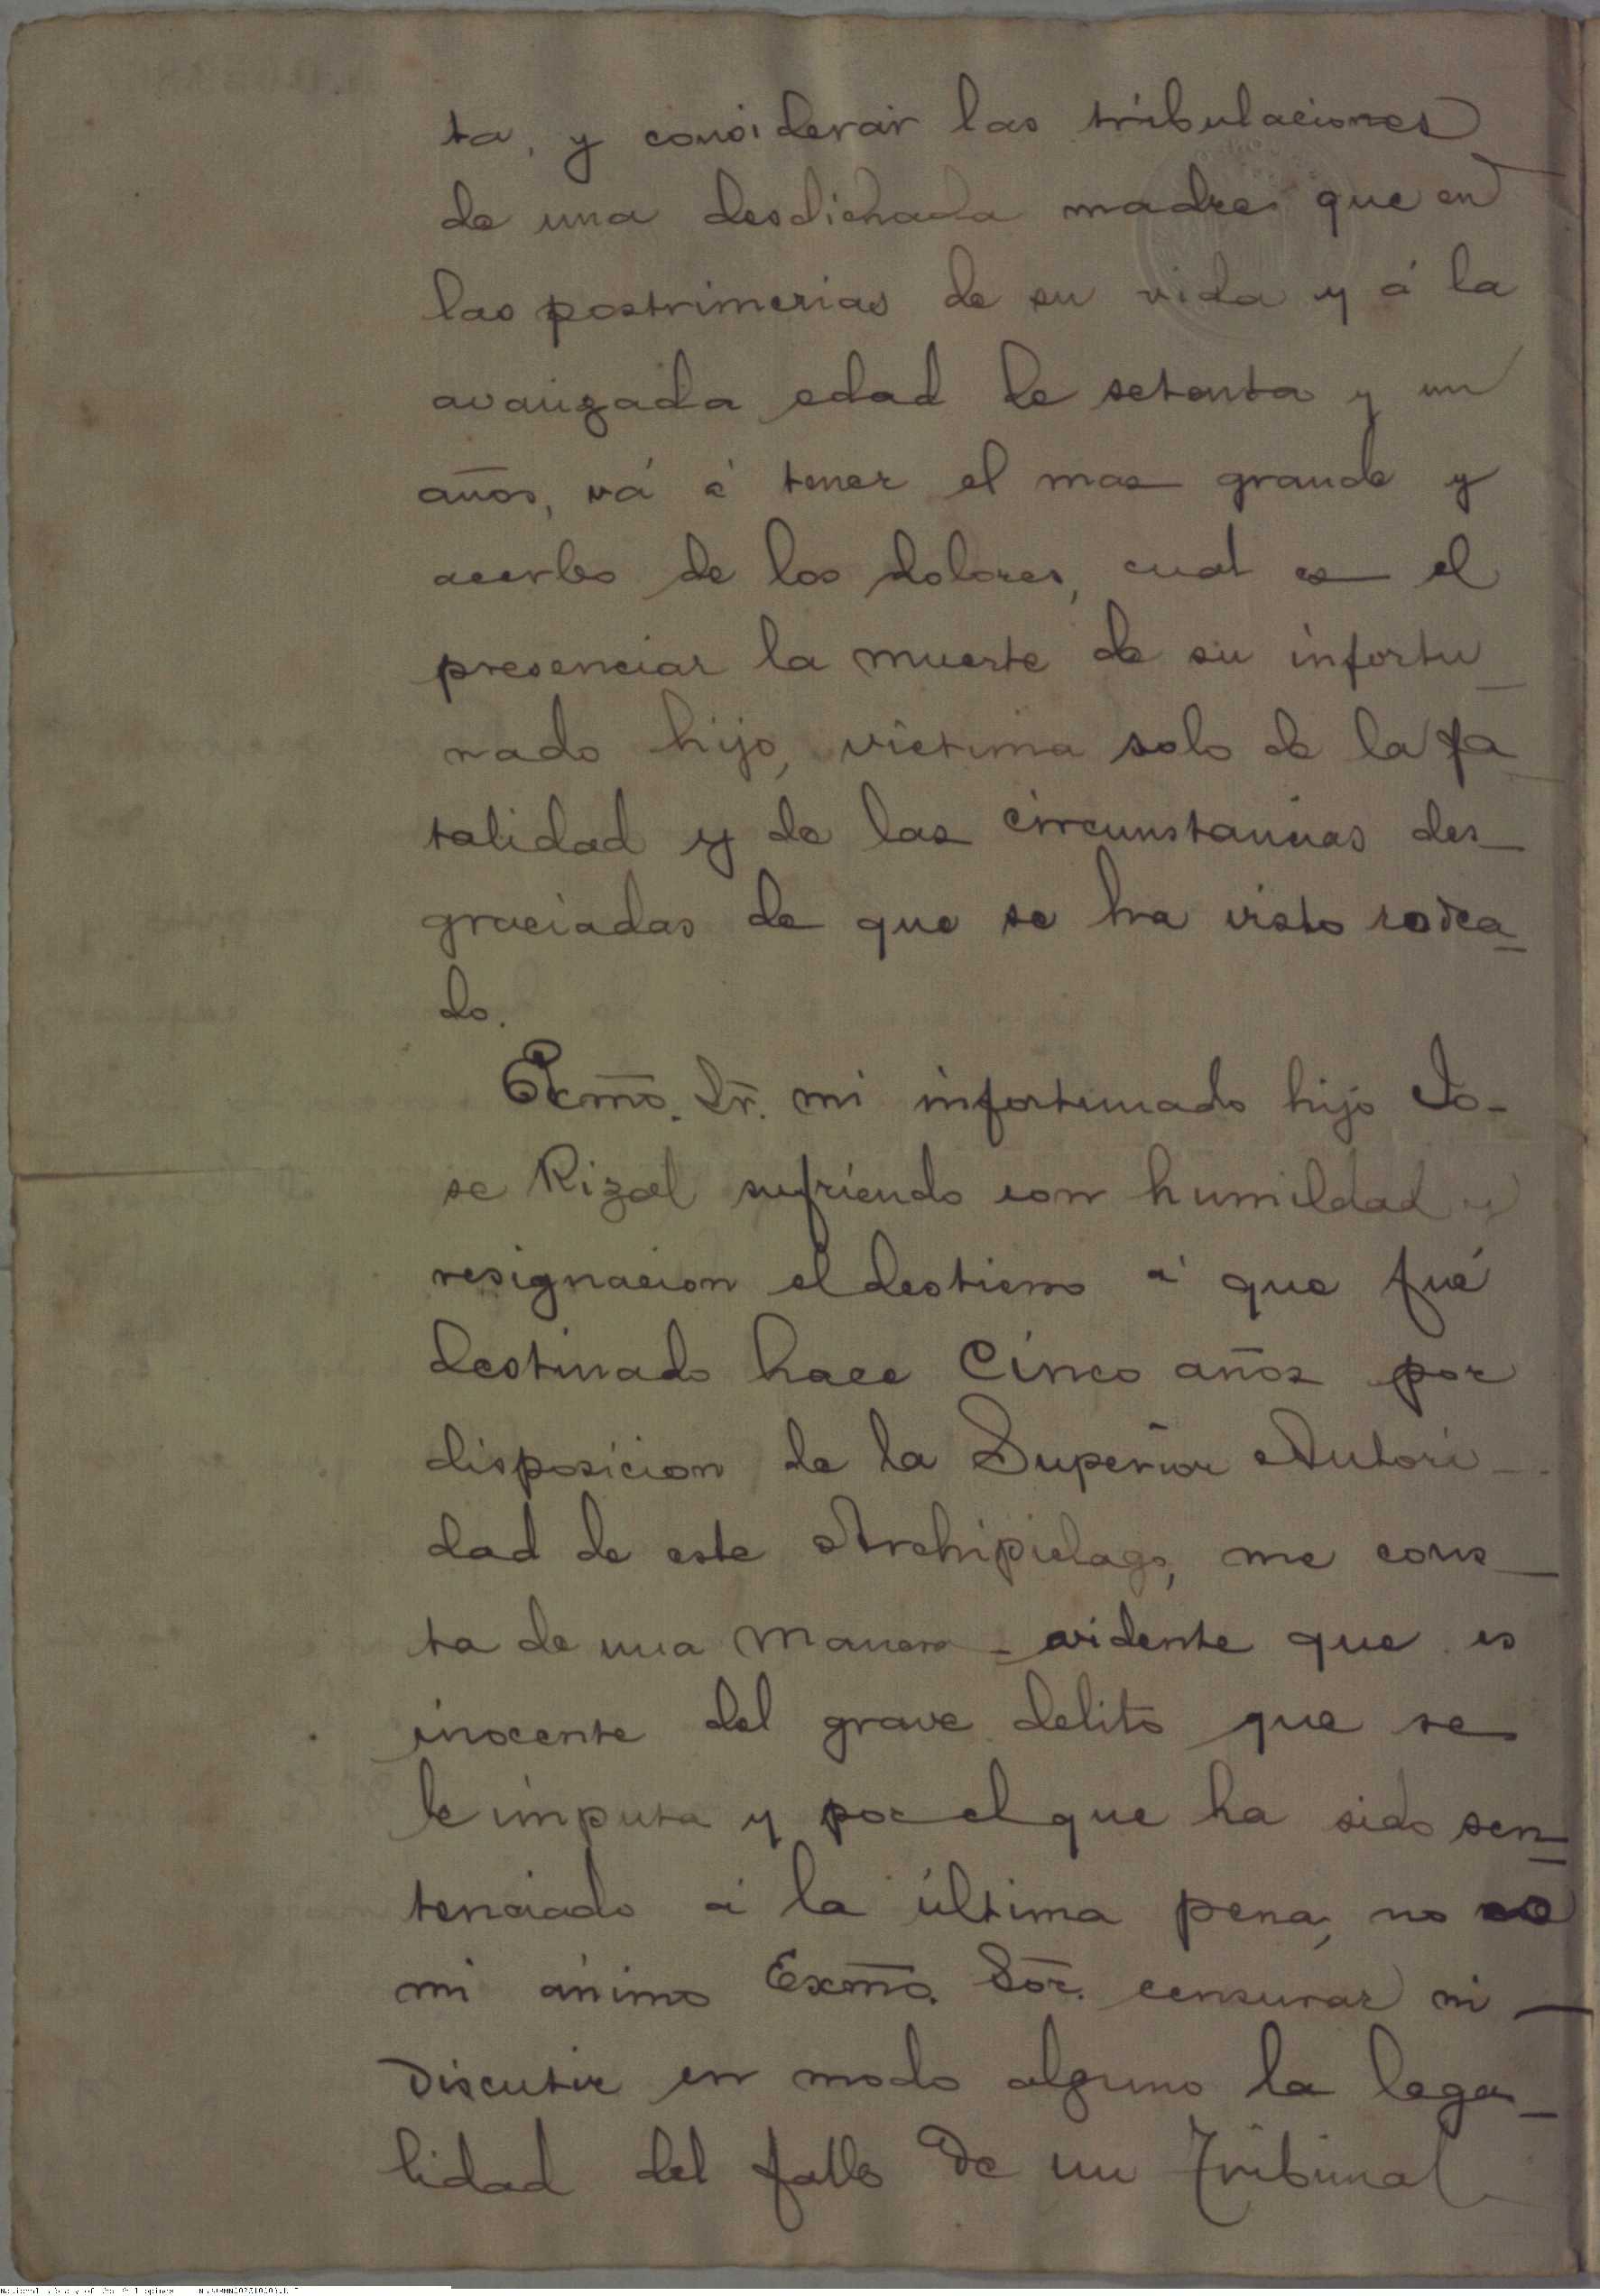 ta, y considerar las tribulaciones
de una desdichada madre que en
las postrimerias de su vida y á la
avanzada edad de setenta y un
años, vá á tener el mas grande y
acerbo de los dolores, cual es el
presenciar la muerte de su infortu_
nado hijo, victima solo de la fa_
talidad y de las circunstancias des_
graciadas de que se ha visto rodea_
do.
Excmo. Sr. mi infortunado hijo Jo-
se Rizal sufriendo con humildad y
resignacion el destierro á que fué
destinado hace Cinco años por
disposicion de la Superior Autori_
dad de este Archipielago, me cons_
ta de una manera evidente que es
inocente del grave delito que se
le imputa y por el que ha sido sen_
tenciado á la última pena, no es
mi ánimo Exmo. Sor. censurar ni
discutir en modo alguno la lega_
lidad del fallo de un Tribunal
National Library of the Philippines